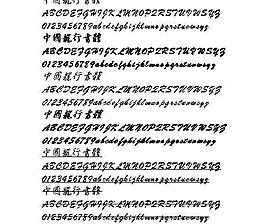 中國龍行書體
ABCDEFGHIJKLMNOPQRSTUVWSYZ
0123456789abcdefgijklmnopqrstuwsyy
中國龍行書體
ABCDEFGHIJKLMNOPQRSTUVWSYZ
0123456789abcdefgijklmnopqrstuwsyy
中國龍行書體
ABCDEFGHIJKLMNOPQRSTUVWSYZ
0123456789abcdefgijklmnopqrstuwsyy
中國龍行書體
ABCDEFGHIJKLMNOPQRSTUVWSYZ
0123456789abcdefgijklmnopqrstuwsyy
中國龍行書體
ABCDEFGHIJKLMNOPQRSTUVWSYZ
0123456789abcdefgijklmnopqrstuwsyy
中國龍行書體
ABCDEFGHIJKLMNOPQRSTUVWSYZ
0123456789abcdefgijklmnopqrstuwsyy